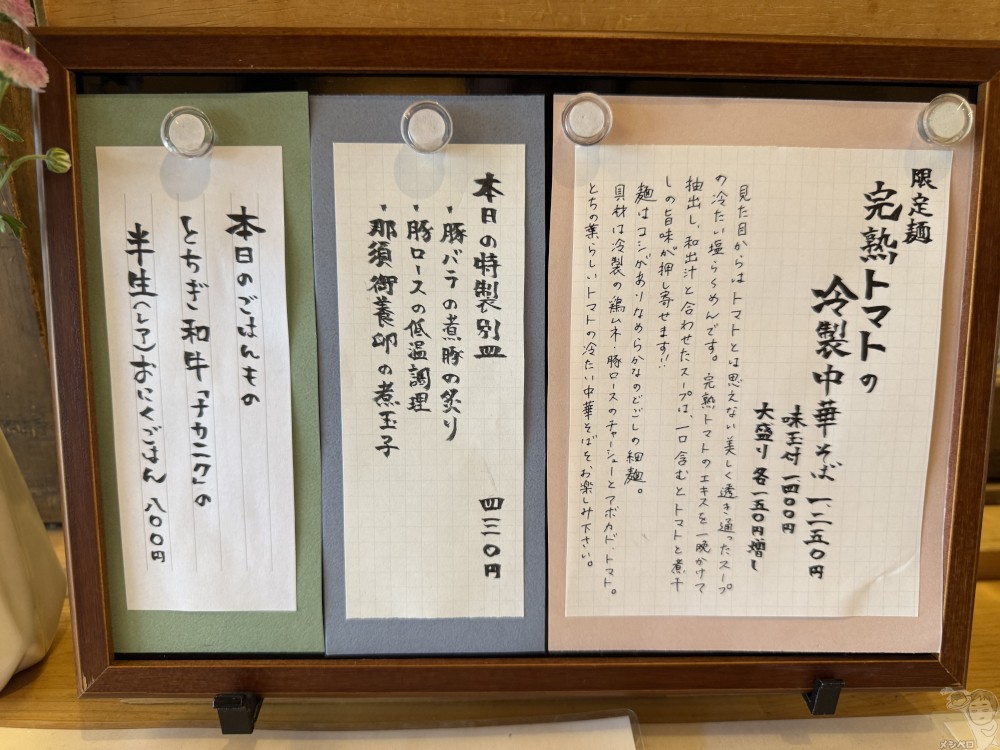 限定麺
完熟トマトの
冷製中華そば 一、二五〇円
味玉付 一四〇〇円
大盛り 各一五〇円増し
見た目からはトマトとは思えない美しく透き通ったスープ
の冷たい塩らぁめんです。完熟トマトのエキスを一晩かけて
抽出し、和出汁と合わせたスープは、一口含むとトマトと煮干
しの旨味が押し寄せます!!
麺はコシがありなめらかなのどごしの細麺。
具材は冷製の鶏ムネ・豚ロースのチャーシューとアボカド、トマト。
とちの葉らしいトマトの冷たい中華そばをお楽しみ下さい。
本日の特製別皿 四三〇円
・豚バラの煮豚の炙り
・豚ロースの低温調理
・那須御養卵の煮玉子
本日のごはんもの
とちぎ和牛「ナカニク」の
半生(レア)おにくごはん 八〇〇円
メシペロ